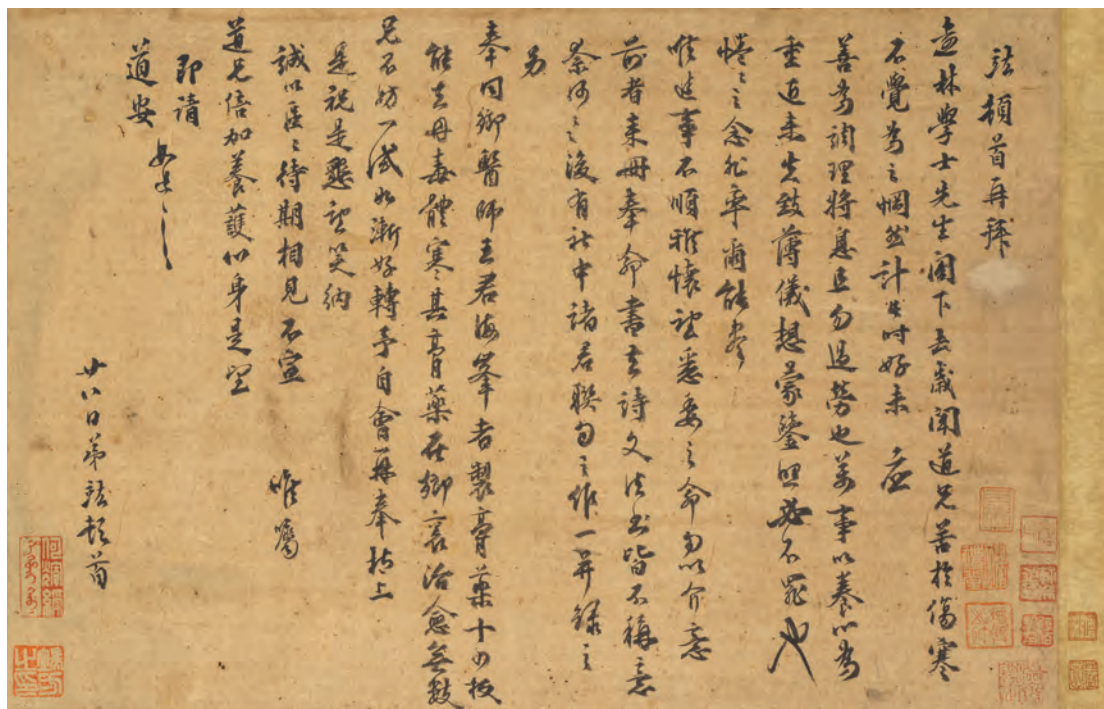 頓首再拜
林學士先生閣下去歲聞道兄苦於傷寒
不覺為之惘然計此時好未
善為調理將息且勿過勞也萬事以養心為
重近來失致薄儀想蒙鑒照必不罪也
惓之之念非率爾能孝
惟進事不順雅懷望悉委之命勿以介意
前者來冊奉命書去詩文法書皆不稱意
奈何之後有社中諸君聯句之作一并錄之
另
奉同鄉醫師王君海峯者製膏藥十四板
能去毋毒體寒之其膏藥在鄉裏治愈無數
兄不妨一試如漸好轉予自會再奉於上
是祝是懇望笑納
誠以區之待期相見不宣 惟囑
道兄倍加養護心身是望
即請
道安
廿八日弟頓首